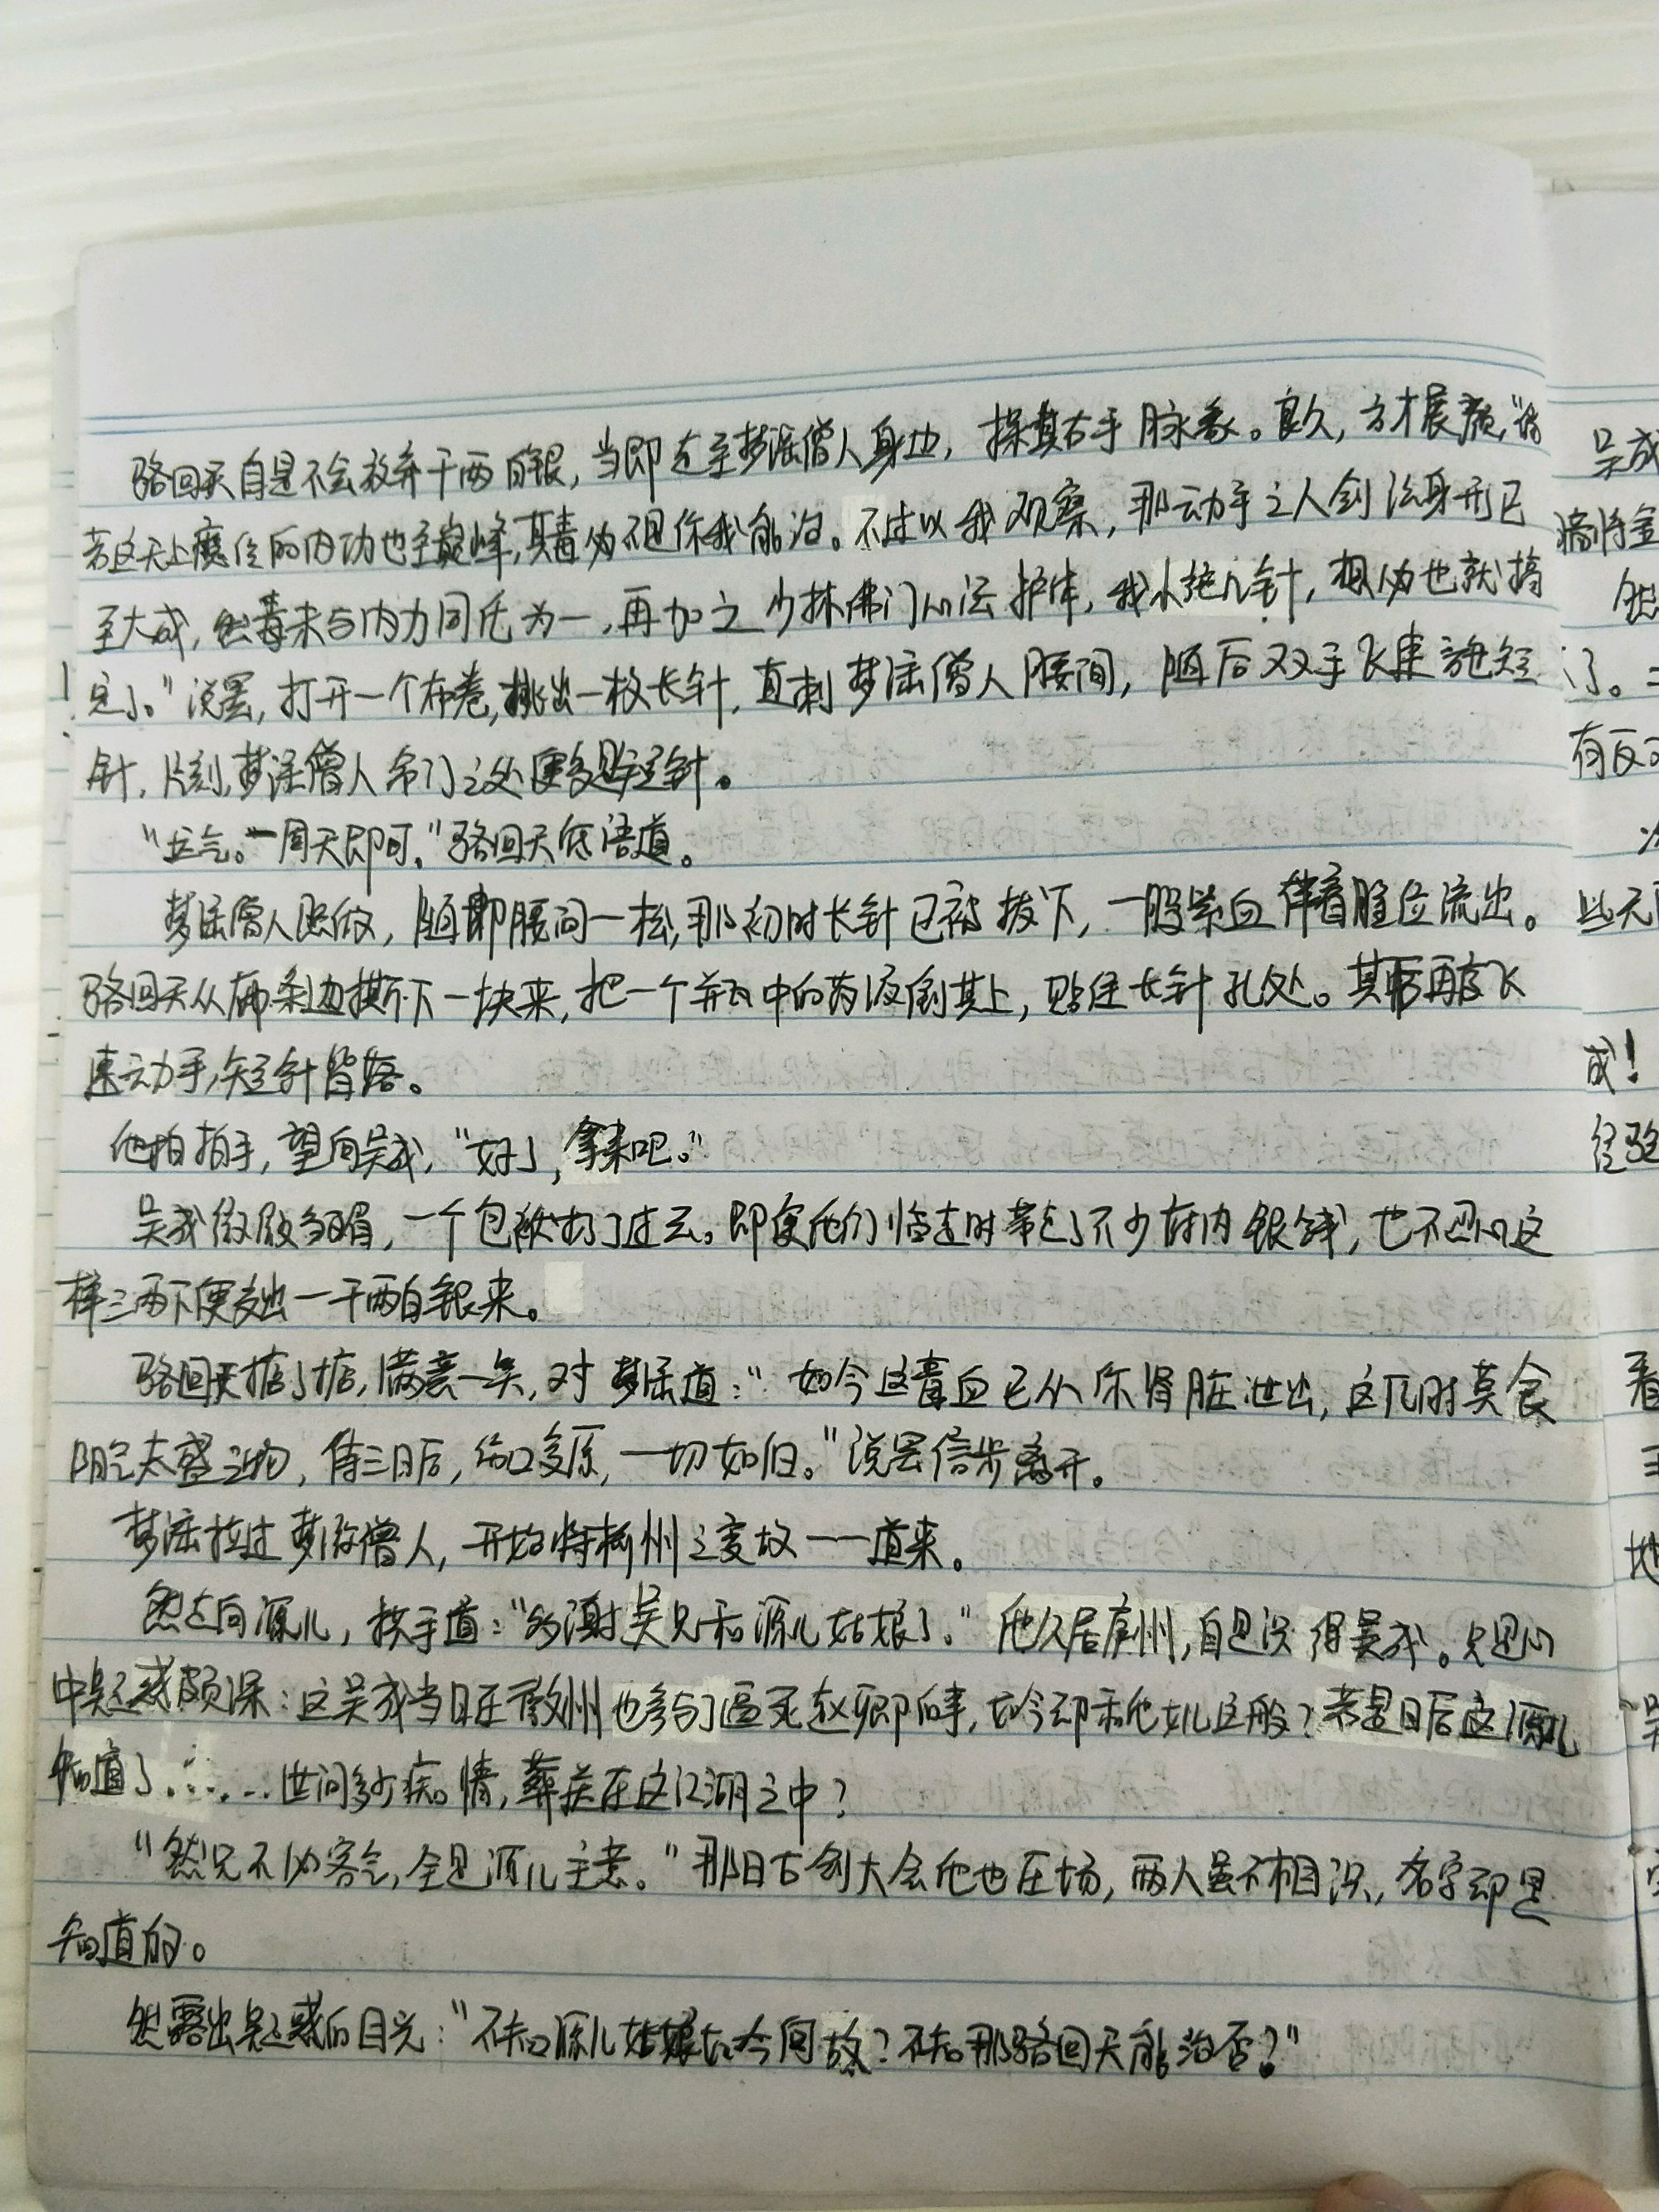 骆回天自是不会放弃千两白银，当即走至梦瑶僧人身边，探其右手脉象。良久，方才展颜，“倘
若这天上魔位的内功也至巅峰，其毒仍不是你我能治。不过以我观察，那动手之人剑法身形已
至大成，然毒未与内力同化为一，再加之少林佛门心法护体，我小施几针，想必也就搞
定了。”说罢，打开一个布卷，挑出一枚长针，直刺梦瑶僧人腰间，随后双手飞速施短
针，片刻，梦瑶僧人命门之处便多是短针。
“运气。一周天即可，”骆回天低语道。
梦瑶僧人照做，随即腰间一松，那初时长针已被拔下，一股紫血伴着腥位流出。
骆回天从布条边撕下一块来，把一个瓶中的药液倒其上，贴住长针孔处。其后再度飞
速动手，短针皆落。
他拍拍手，望向吴成，“好了，拿来吧。”
吴成微微皱眉，一个包袱扔了过去。即便他们临走时带走了不少庄内银钱，也不忍心这
样三两下便支出一千两白银来。
骆回天掂了掂，满意一笑，对梦瑶道：“如今这毒血已从你肾脏泄出，这几时莫食
阴气太盛之物，待三日后，伤口复原，一切如旧。”说罢信步离开。
梦瑶拉过梦弥僧人，开始将柳州之变故一一道来。
然走向源儿，拱手道：“多谢吴兄和源儿姑娘了。”他久居庐州，自是识得吴成。只是心
中疑惑颇深：这吴成当日在徽州也参与了逼死赵卿的事，如今却和他女儿这般？若是日后这源儿
知道了……世间多少痴情，葬送在这江湖之中？
“然兄不必客气，全是源儿主意。”那日古剑大会他也在场，两人虽不相识，名字却是
知道的。
然露出疑惑的目光：“不知源儿姑娘如今何故？不知那骆回天能治否？”
吴成
成！
经验
看
地